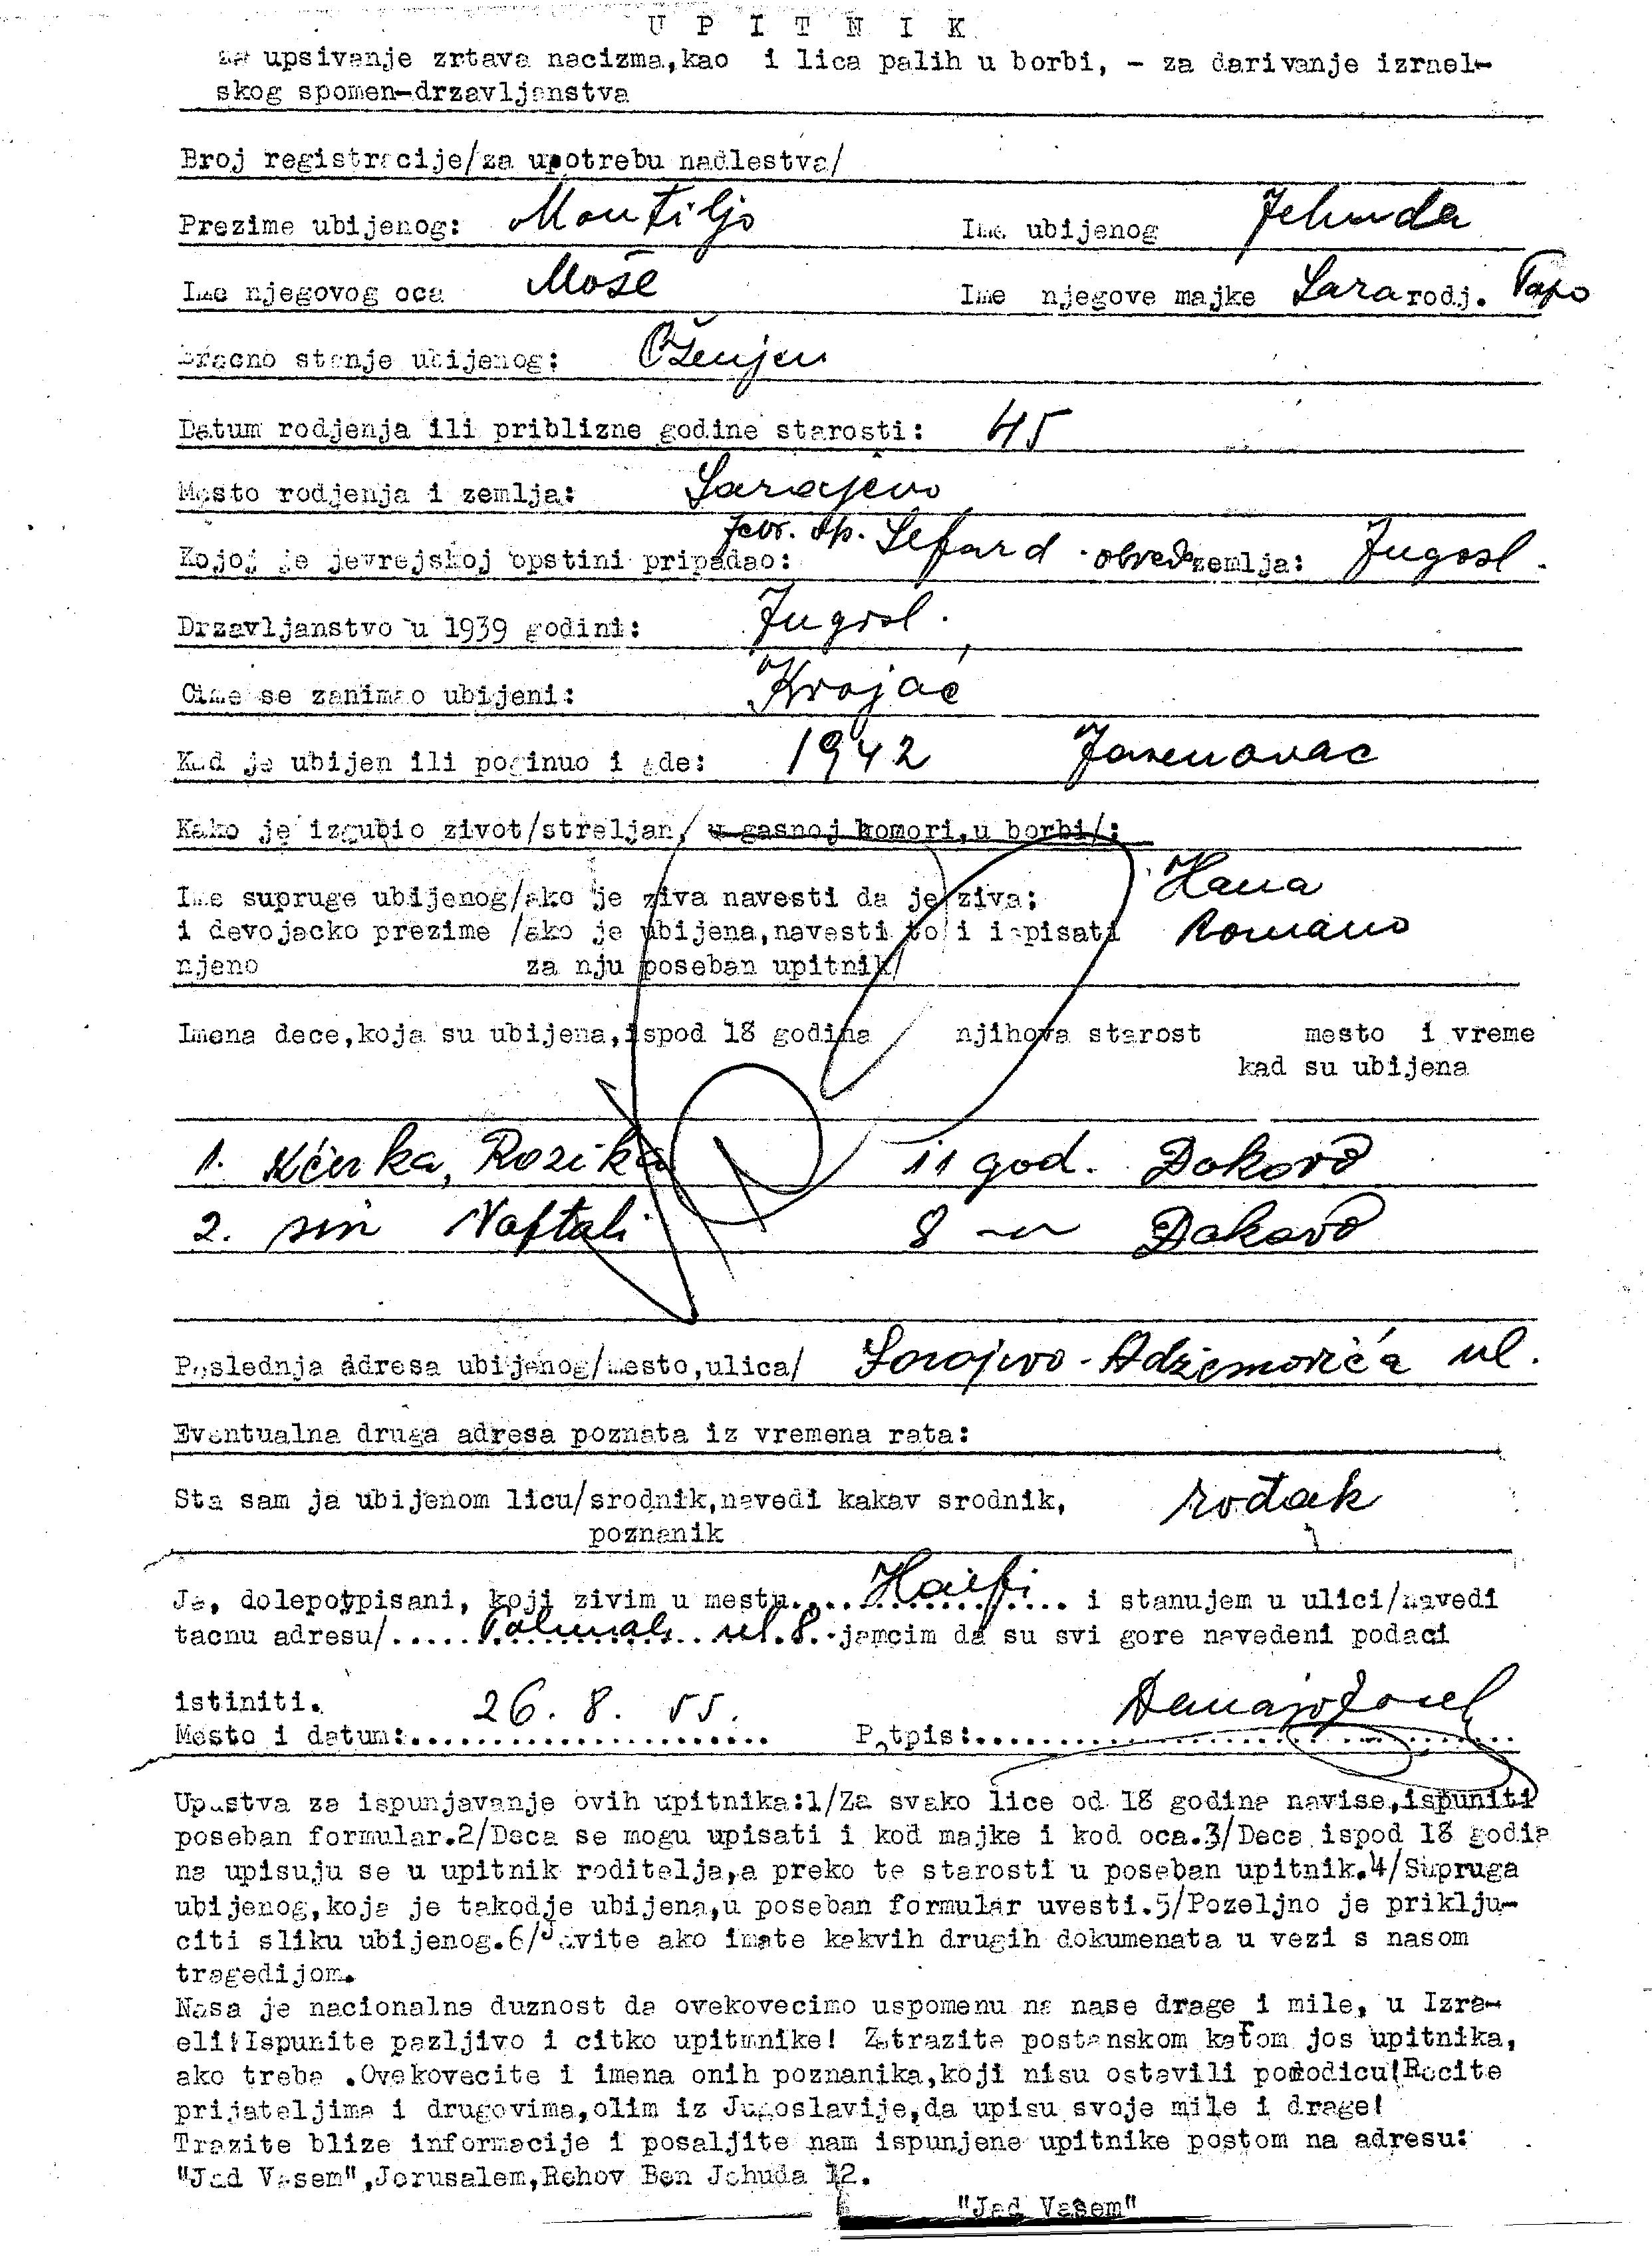 U P I T N I K
za upsivanje zrtava nacizma,kao i lica palih u borbi, - za darivanje izrael-
skog spomen-drzavljanstva
Broj registracije/za upotrebu nadlestva/
Prezime ubijenog: Montiljo Ime ubijenog Jehuda
Ime njegovog oca Moše Ime njegove majke Sara rodj. Papo
Bracno stanje ubijenog: Oženjen
Datum rodjenja ili priblizne godine starosti: 45
Mesto rodjenja i zemlja: Sarajevo
Kojoj je jevrejskoj opstini pripadao: Jevr. op. Sefard. obred zemlja: Jugosl.
Drzavljanstvo u 1939 godini: Jugosl.
Cime se zanimao ubijeni: Krojač
Kad je ubijen ili poginuo i gde: 1942 Jasenovac
Kako je izgubio zivot/streljan/ u gasnoj komori,u borbi/:
Ime supruge ubijenog/ako je ziva navesti da je ziva; Hana
i devojacko prezime /ako je ubijena,navesti to i ispisati Romano
njeno za nju poseban upitnik/
Imena dece,koja su ubijena,ispod 18 godina njihova starost mesto i vreme
kad su ubijena
1. Kćerka, Rozika 11 god. Đakovo
2. sin Naftali 8 -"- Đakovo
Poslednja adresa ubijenog/mesto,ulica/ Sarajevo - Adžemovića ul.
Eventualna druga adresa poznata iz vremena rata:
Sta sam ja ubijenom licu/srodnik,navedi kakav srodnik, rođak
poznanik
Ja, dolepotpisani, koji zivim u mestu.....Haifi..... i stanujem u ulici/navedi
tacnu adresu/..... ul. 8. jamcim da su svi gore navedeni podaci
istiniti.
Mesto i datum: 26. 8. 55. Potpis:
Upustva za ispunjavanje ovih upitnika:1/Za svako lice od 18 godina navise,ispuniti
poseban formular.2/Deca se mogu upisati i kod majke i kod oca.3/Deca ispod 18 godi
na upisuju se u upitnik roditelja,a preko te starosti u poseban upitnik.4/Supruga
ubijenog,koja je takodje ubijena,u poseban formular uvesti.5/Pozeljno je priklju-
citi sliku ubijenog.6/Javite ako imate kakvih drugih dokumenata u vezi s nasom
tragedijom.
Nasa je nacionalna duznost da ovekovecimo uspomenu na nase drage i mile, u Izra-
eli!Ispunite pazljivo i citko upitnike! Zatrazite postanskom katom jos upitnika,
ako treba .Ovekovecite i imena onih poznanika,koji nisu ostavili porodicu!Recite
prijateljima i drugovima,olim iz Jugoslavije,da upisu svoje mile i drage!
Trazite blize informacije i posaljite nam ispunjene upitnike postom na adresu:
"Jad Vasem",Jerusalem,Rehov Ben Jehuda 12.
"Jad Vasem"